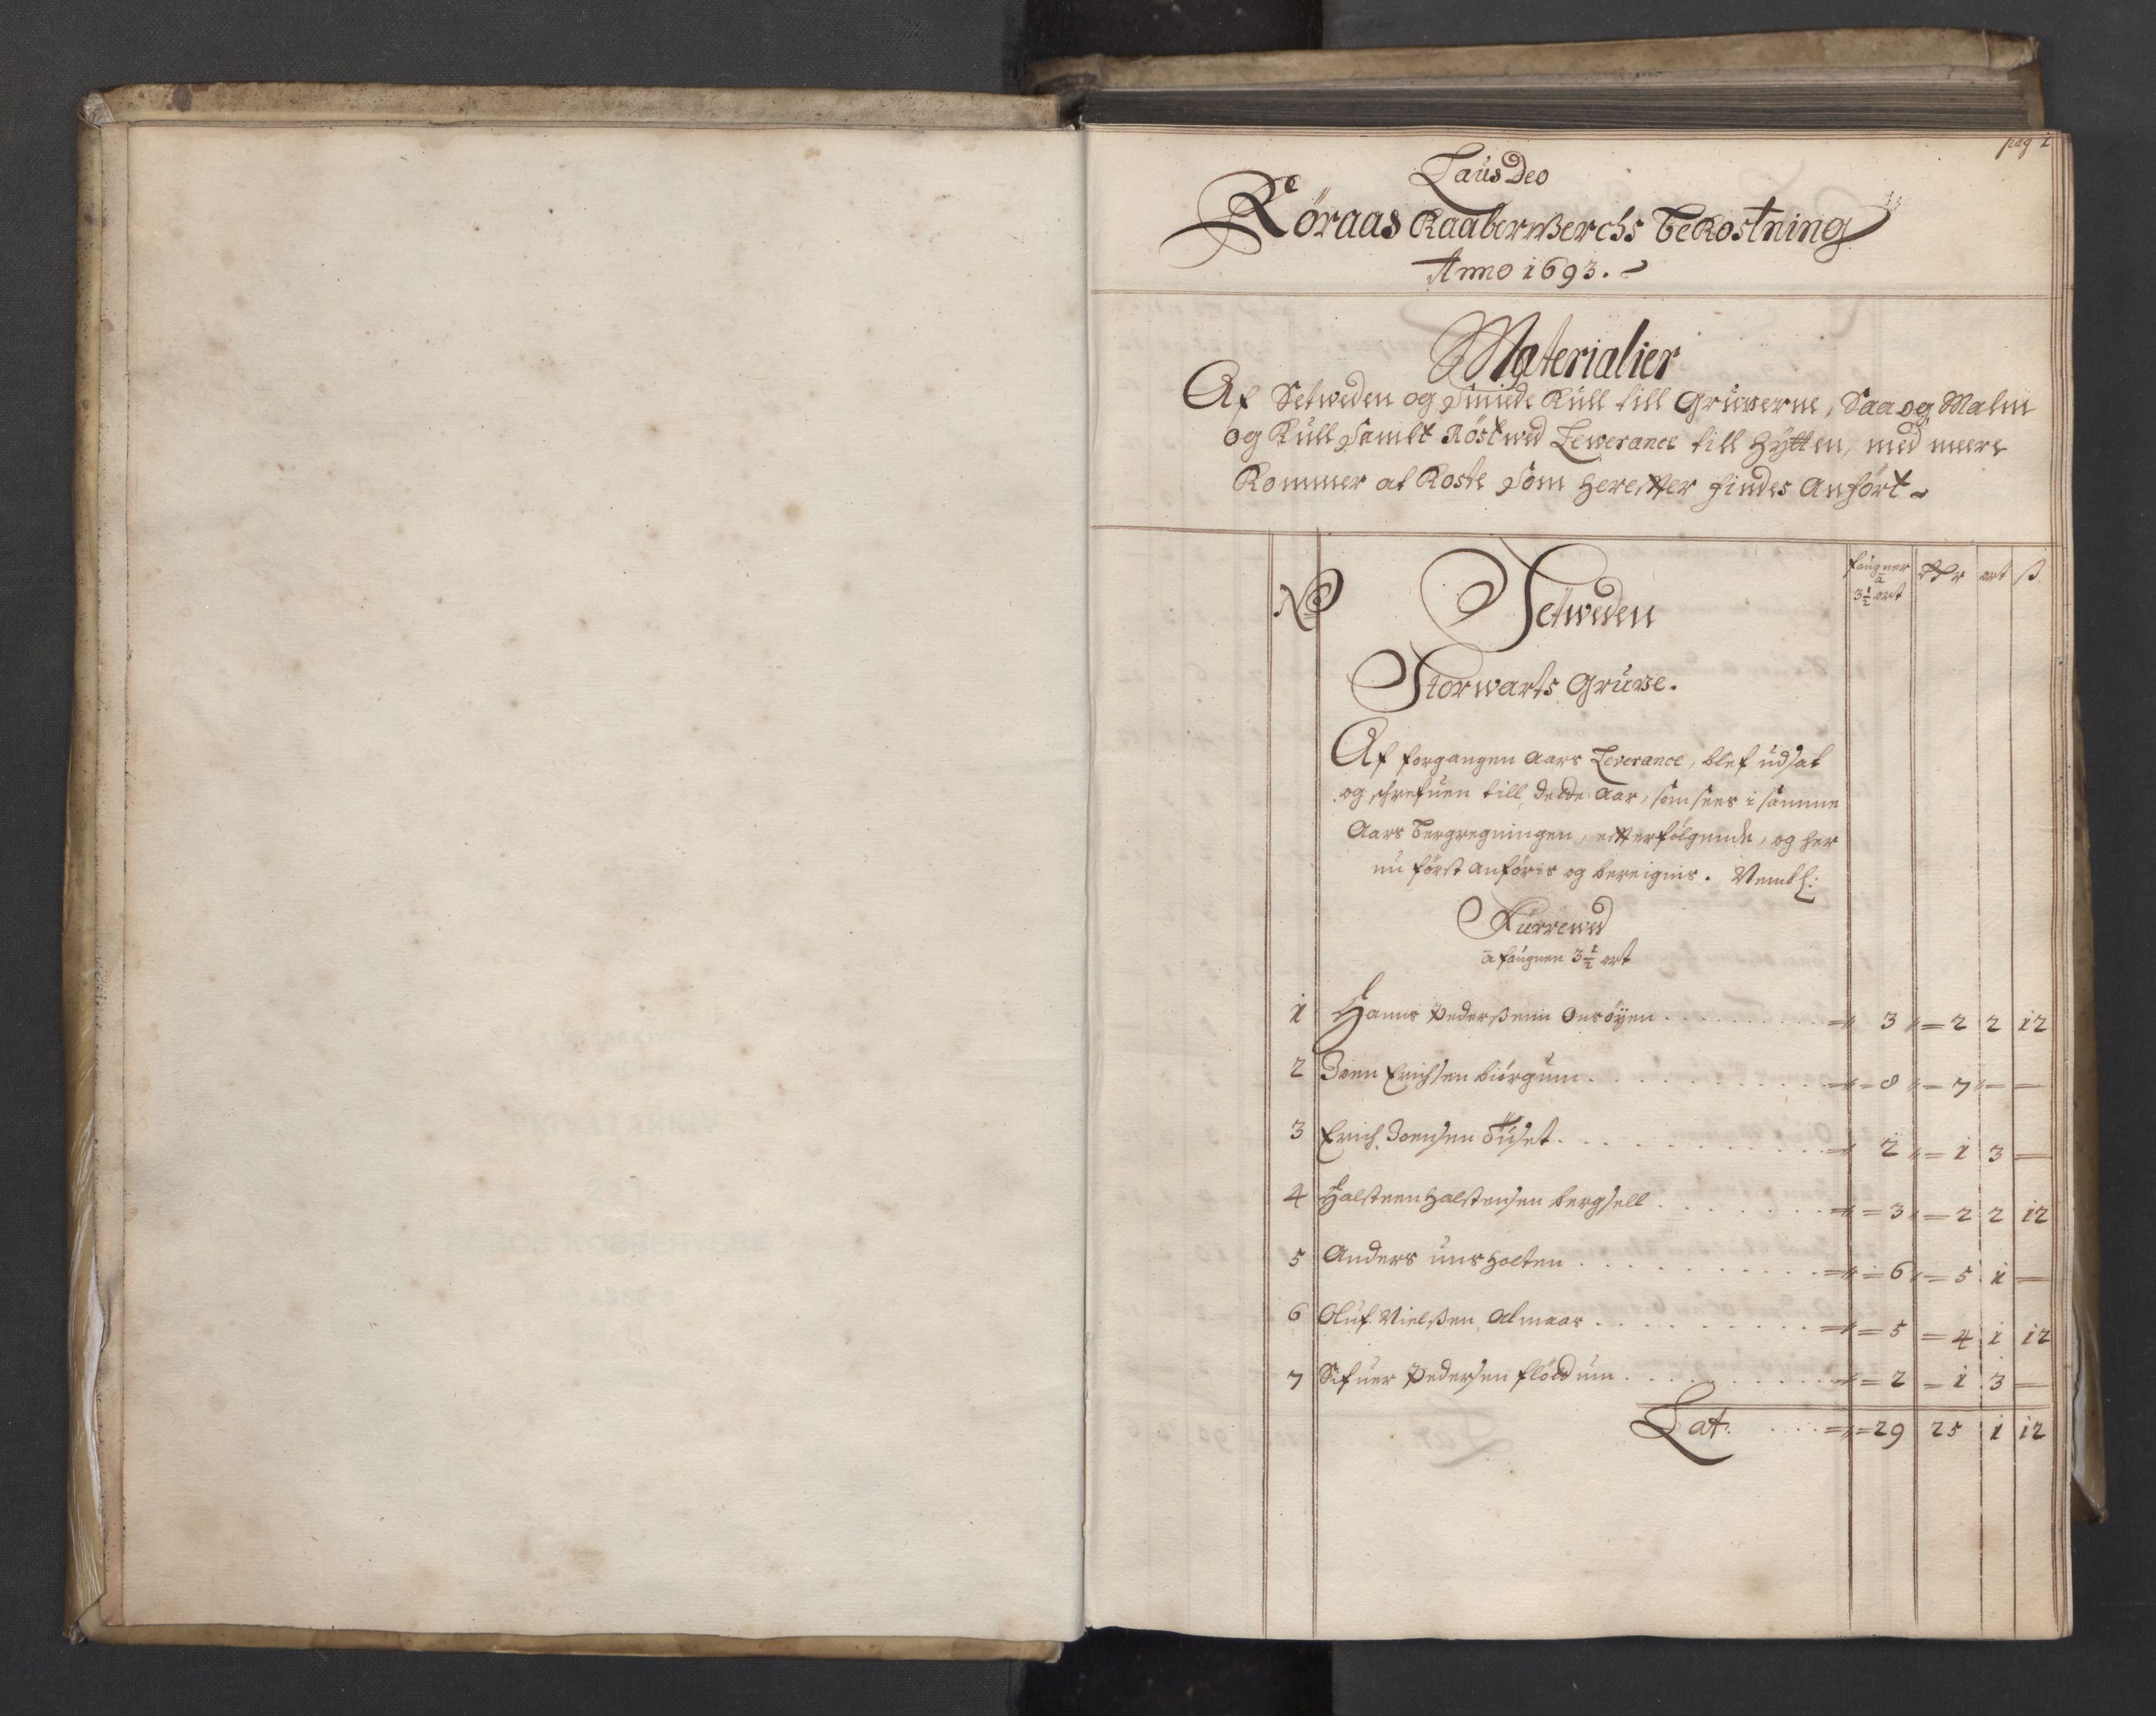 pag 1
Laus Deo
Röraas Kaaberwerchs Bekostning
Anno 1693.
Materialier
Af Setweden og Smiede Kull till Gruverne, Saa og Malm
og Kull Sambt Röstwed Leverance till Hÿtten, med meere
Kommer at Koste Som Herefter findes Anfört
No Setweden faugner à 3½ ort dlr ort ß
Storwarts Gruve.
Af forgangen Aars Leverance, blef udsat
og schrefuen till dette Aar, som sees i samme
Aars Bergregningen, efterfölgende, og her
nu först anföris og bereignis. Nembl:
Kurrewed
à faugnen 3½ ort
1 Hanns Pederßenn Onsöÿen 3 2 2 12
2 Joen Erichsen biörgum 8 7 — —
3 Erich Joensen 2 1 3 —
4 Halsteen Halstensen bergsell 3 2 2 12
5 Anders unsholten 6 5 1 —
6 Oluf Nielßen Almaas 5 4 1 12
7 Sifuer Pedersen flöddum 2 1 3 —
Lat. 29 25 1 12